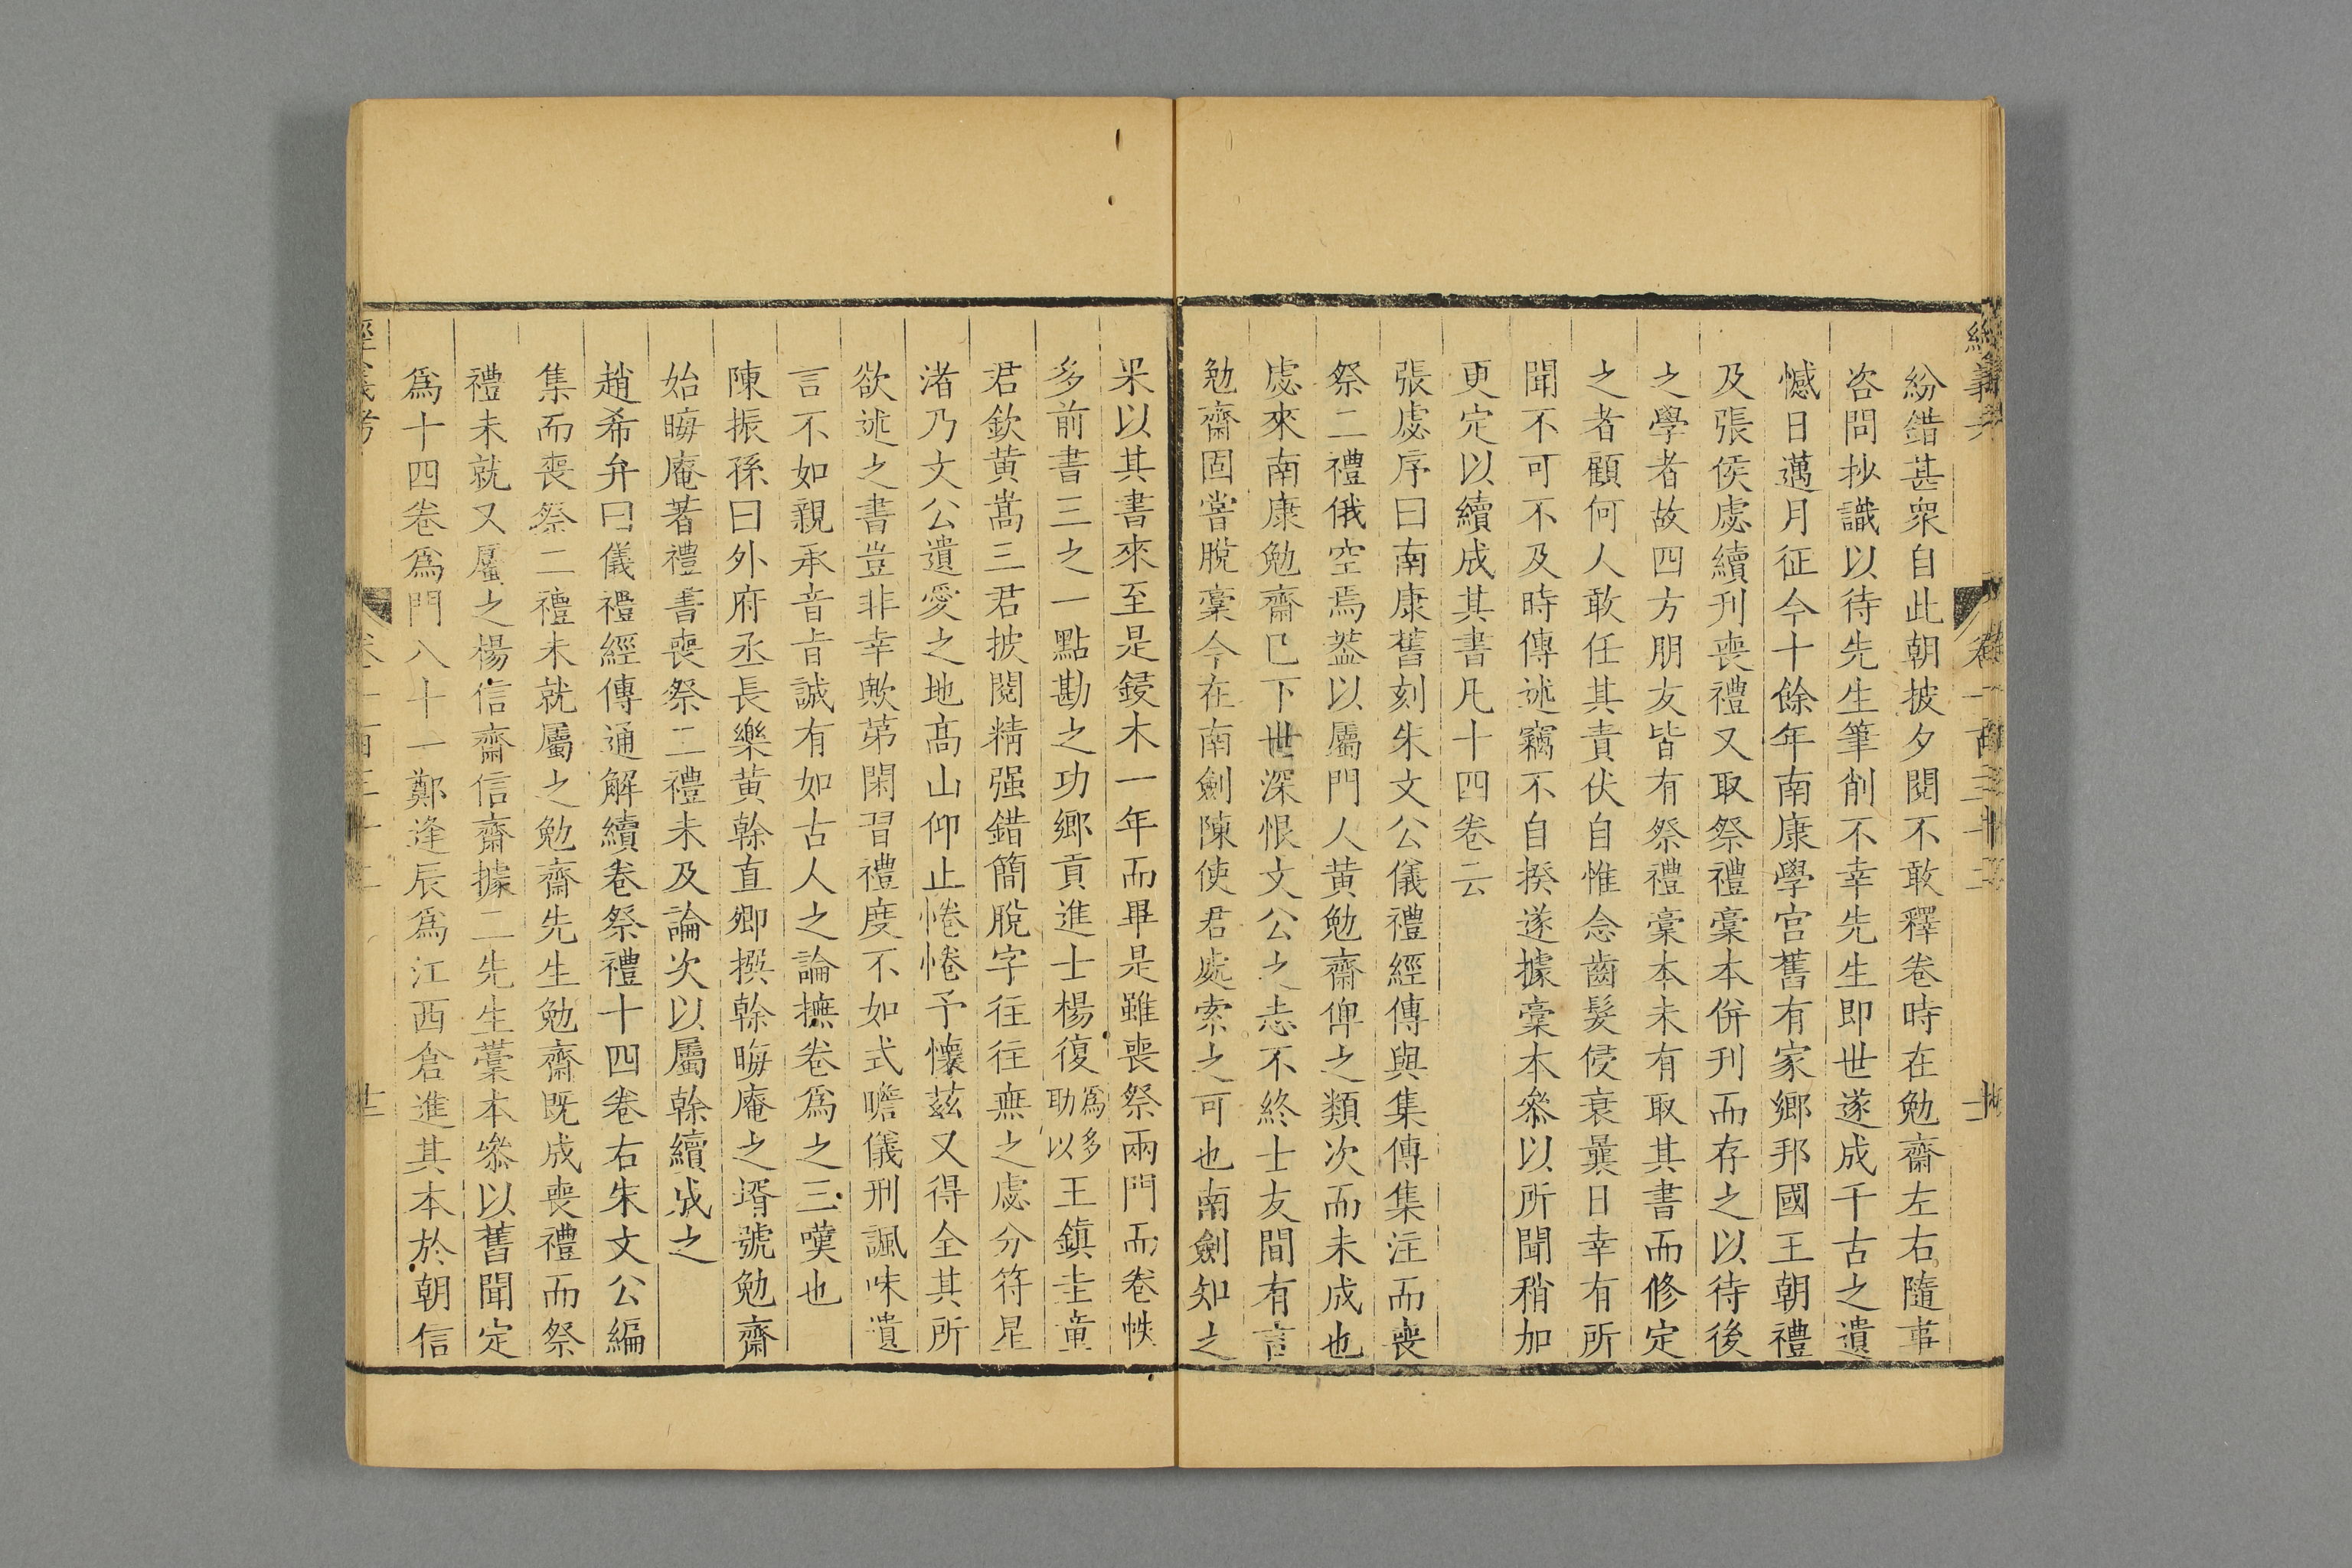 紛錯甚眾自此朝披夕閱不敢釋卷時在勉齋左右隨事
咨問抄識以待先生筆削不幸先生即世遂成千古之遺
憾日邁月征今十餘年南康學宮舊有家鄉邦國王朝禮
及張侯虙續刋喪禮又取祭禮稾本併刋而存之以待後
之學者故四方朋友皆有祭禮稾本未有取其書而修定
之者顧何人敢任其責伏自惟念齒髮侵衰曩日幸有所
聞不可不及時傳述竊不自揆遂據稾本叅以所聞稍加
更定以續成其書凡十四卷云
張虙序曰南康舊刻朱文公儀禮經傳與集傳集注而喪
祭二禮俄空焉葢以屬門人黃勉齋俾之類次而未成也
虙來南康勉齋已下世深恨文公之志不終士友間有言
勉齋固嘗脫稾今在南劍陳使君處索之可也南劍知之
果以其書來至是鋟木一年而畢是雖喪祭兩門而卷帙
多前書三之一點勘之功鄉貢進士楊復爲多助以王鎮圭童
君欽黃嵩三君披閱精强錯簡脫字往往無之虙分符星
渚乃文公遺愛之地高山仰止惓惓予懷茲又得全其所
欲述之書豈非幸歟第閑習禮度不如式瞻儀刑諷味遺
言不如親承音旨誠有如古人之論撫卷爲之三嘆也
陳振孫曰外府丞長樂黃榦直卿撰榦晦庵之壻號勉齋
始晦庵著禮書喪祭二禮未及論次以屬榦續成之
趙希弁曰儀禮經傳通解續卷祭禮十四卷右朱文公編
集而喪祭二禮未就屬之勉齋先生勉齋既成喪禮而祭
禮未就又屬之楊信齋信齋據二先生稾本叅以舊聞定
爲十四卷爲門八十一鄭逢辰爲江西倉進其本於朝信